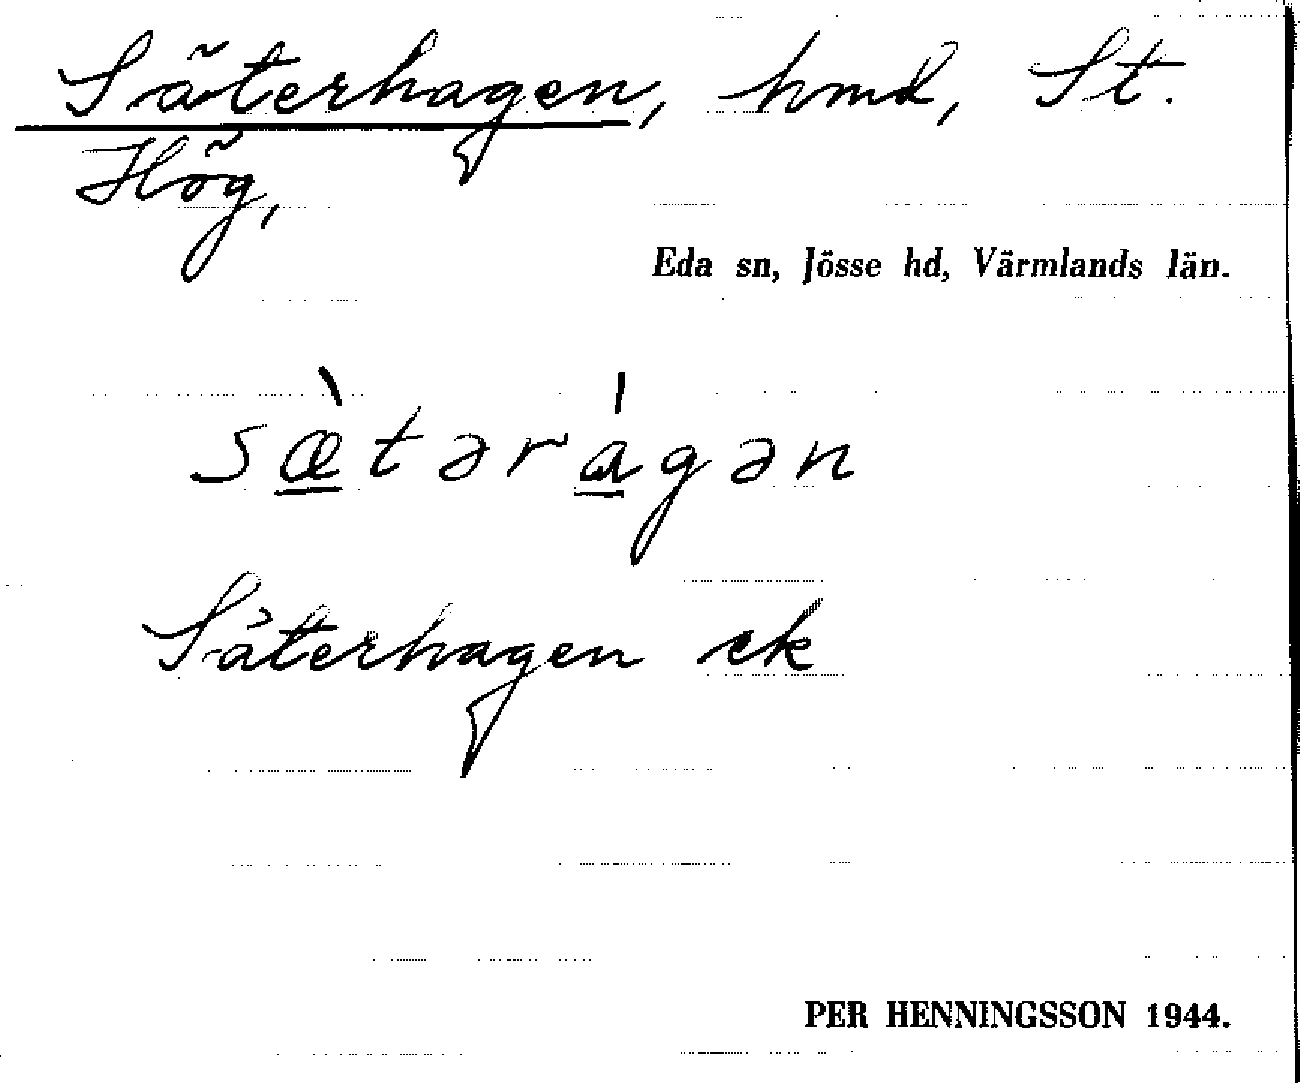 Säterhagen, hmd, St.
Hög,
Eda sn, Jösse hd, Värmlands län.
sæ̀tərágən
Säterhagen ek
PER HENNINGSSON 1944.